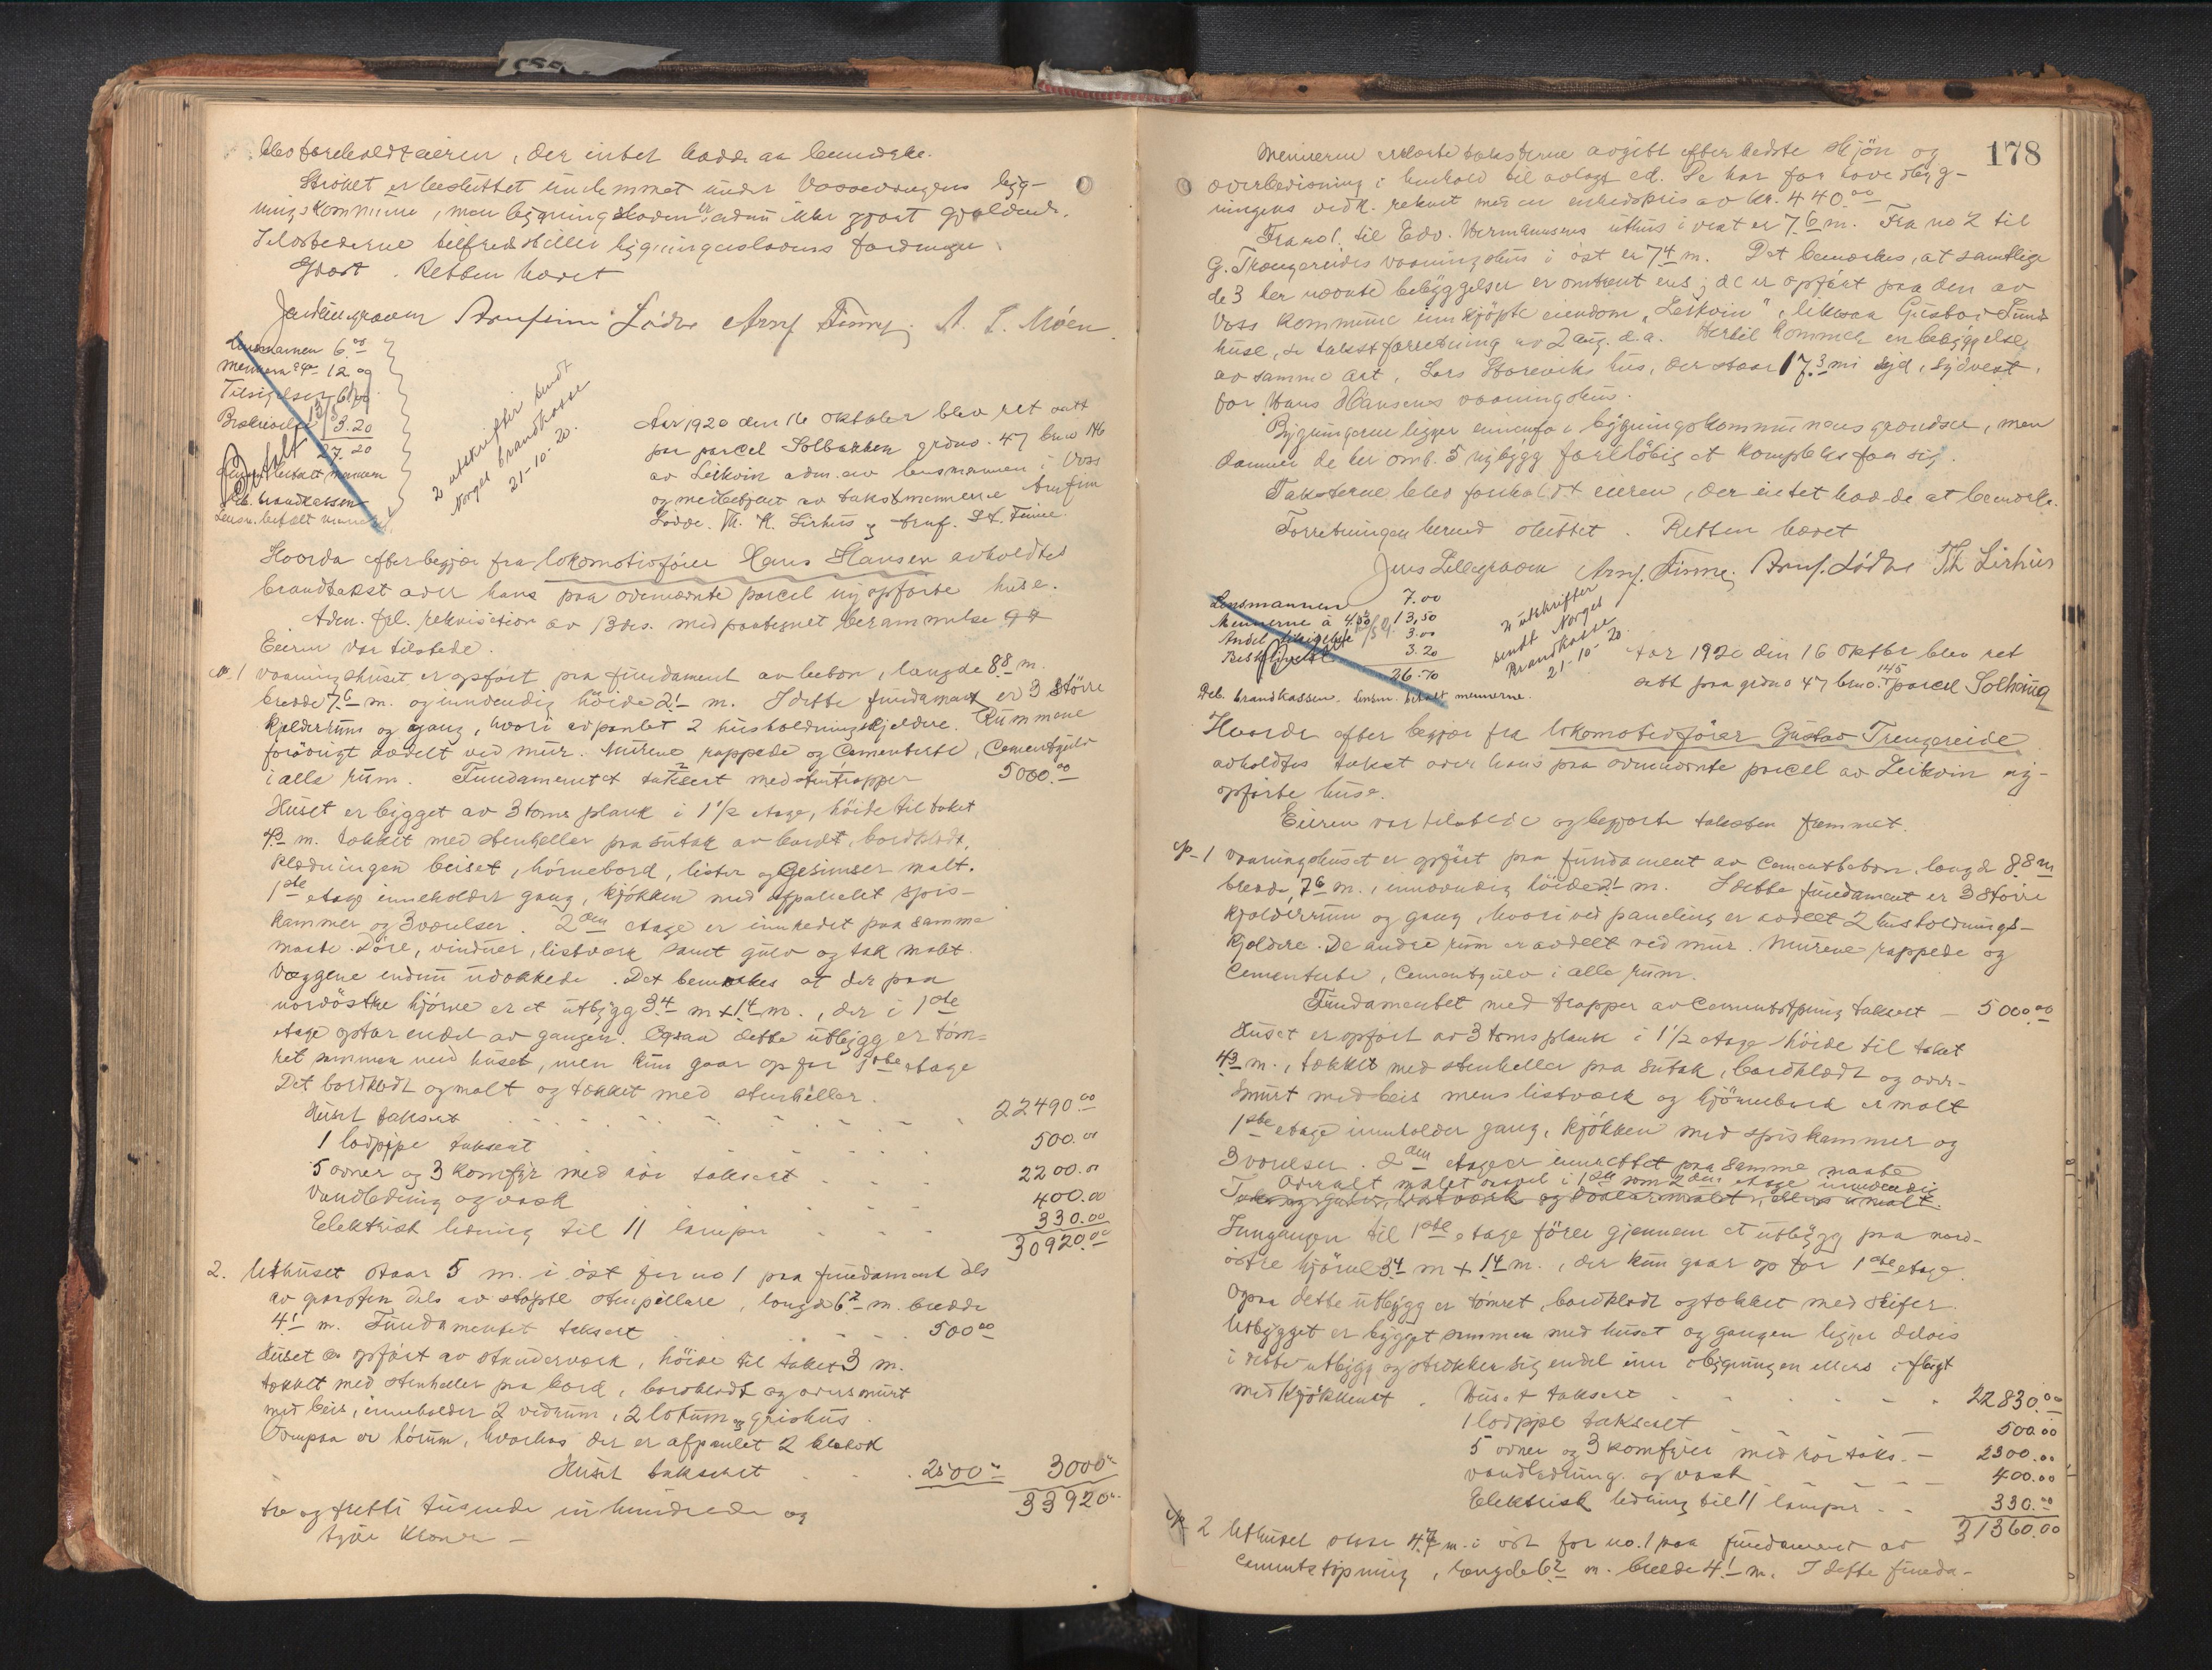 blev foreholdt eieren, der intet hadde at bemerke.
Strøket er besluttet indlemmet under Vossevangens byg-
ningskommune, men bygningsloven er endnu ikke gjort gjældende.
Ildstederne tilfredsstiller bygningslovens fordringer
Gjort. Retten hævet
Jens Lillegraven Arnfinn Lødve Arnf. Finne A. L. Møen
Lensmannen 6.00
Mennerne 12.00
Tilsigelser 6.00
Beskrivelse 3.20
27.20
Betalt
Deb. brandkassen
Lensm. betalt mennene
2 utskrifter sendt
Norges Brandkasse
21-10-20.
Aar 1920 den 16 oktober blev ret satt
paa parcel Solbakken grdno. 47 brno 146
av Leikvin adm. av lensmannen i Voss
og medbetjent av takstmennene Arnfinn
Lødve. Th. K. Lirhus og Arnf. St. Finne.
Hvorda efter begjær fra lokomotivfører Hans Hansen avholdtes
brandtakst over hans paa ovennævnte parcel nyopførte huse.
Adm. frl. rekvisition av 13 ds. med paategnet berammelse
Eieren var tilstede.
no. 1 Vaaningshuset er opført paa fundament av beton, længde 8.8 m.
bredde 7.6 m. og innvendig høide 2.1 m. I dette fundament er 3 større
kjelderrum og gang, hvori avpanlet 2 husholdningskjeldere. Rummene
forøvrigt avdelt ved mur. Murene rappede og cementerte, cementgulv
i alle rum. Fundamentet taksert med stentrapper 5000.00
Huset er bygget av 3 toms plank i 1 1/2 etage, høide til taket
4.3 m. tækket med stenheller paa sutak av bordt, bordklædt,
klædningen beiset, hørnebord, lister og gesimser malt.
1ste etage inneholder gang, kjøkken med afpanelet spis-
kammer og 3 værelser. 2den etage er innredet paa samme
maate. Døre, vinduer, listværk samt gulv og tak malt.
Væggene endnu udækkede. Det bemerkes at der paa
nordøstre hjørne er et utbygg 3.4 m x 1.4 m., der i 1ste
etage optar endel av gangen. Ogsaa dette utbygg er tøm-
ret sammen med huset, men kun gaar op for 1ste etage
Det bordklædt og malt og tækket med stenheller.
Huset taksert 22490.00
1 lodpipe taksert 500.00
5 ovner og 3 komfyr med rør taksert 2200.00
Vandledning og vask 400.00
Elektrisk ledning til 11 lamper 330.00
30920.00
2. Uthuset staar 5 m. i øst for no 1 paa fundament dels
av graasten dels av støpte stenpillare, længde 6.2 m. bredde
4.1 m. Fundamentet taksert 500.00
Huset er opført av standerværk, høide til taket 3 m.
tækket med stenheller paa bord, bordklædt og oversmurt
med beis, inneholder 2 vedrum, 2 lokum og grishus.
Ovenpaa er hørum, hvorhos der er afpanlet 2 klokot
Huset taksert 2500.00 3000.00
33920.00
tre og tretti tusende nihundrede og
tyve kroner —
178
Mennerne erklærte taksterne avgitt efter bedste skjøn og
overbevisning i henhold til avlagt ed. De har for hovedbyg-
ningens vedk. reknet med en enhedspris av kr. 440.00
Fra no 1 til Edv. Hermansens uthus i vest er 7.6 m. Fra no 2 til
G. Trengereides vaaningshus i øst er 7.4 m. Det bemerkes, at samtlige
de 3 her nævnte bebyggelser er omtrent ens; de er opført paa den av
Voss kommune innkjøpte eiendom „Leikvin“, likesaa Gustav Lund
huse, se takstforretning av 2 aug. d.a. Hertil kommer en bebyggelse
av samme art, Lars Storeviks hus, der staar 17.3 m i syd, sydvest,
for Hans Hansens vaaningshus.
Bygningerne ligger innenfor bygningskommunens grændser, men
danner de her omh. 5 nybygg foreløbig et kompleks for sig.
Taksterne blev foreholdt eieren, der intet hadde at bemerke.
Forretningen hermed sluttet. Retten hævet
Jens Lillegraven Arnf. Finne, Arnf. Lødve Th Lirhus
Lensmannen 7.00
Mennerne a 4.50 13,50
Andel tilsigelse 3.00
Beskrivelse 3.20
26.70
Deb. brandkassen. Lensm. betalt mennerne.
2 utskrifter
sendt Norges
Brandkasse
21-10-20.
Aar 1920 den 16 oktbr blev ret
satt paa grdno 47 brno. 145 parcel Solhaug
Hvorda efter begjær fra lokomotivfører Gustav Trengereide
avholdtes takst over hans paa ovennævnte parcel av Leikvin ny-
opførte huse.
Eieren var tilstede og begjærte taksten fremmet.
no. 1 Vaaningshuset er opført paa fundament av cementbeton, længde 8.8 m
bredde 7.6 m., innvendig høide 2.1 m. I dette fundament er 3 større
kjelderrum og gang, hvori ved paneling er avdelt 2 husholdnings-
kjeldere. De andre rum er avdelt ved mur. Murene rappede og
cementerte, cementgulv i alle rum.
Fundamentet med trapper av cementstøpning taksert — 5000.00
Huset er opført av 3 toms plank i 1 1/2 etage høide til taket
4.3 m., tækket med stenheller paa sutak, bordklædt og over-
smurt med beis mens listværk og hjørnebord er malt
1ste etage inneholder gang, kjøkken med spiskammer og
3 værelser. 2den etage er innrettet paa samme maate
Overalt malet saavel i 1ste som 2den etage innvendig
Tak og gulv, listværk og dører malt, ellers umalt.
Inngangen til 1ste etage fører gjennem et utbygg paa nord-
østre hjørne 3.4 m x 1.4 m., der kun gaar op for 1ste etage.
Ogsaa dette utbygg er tømret, bordklædt og tækket med skifer.
Utbygget er bygget sammen med huset og gangen ligger delvis
i dette utbygg og strækker sig endel inn i bygningen ellers i flugt
med kjøkkenet. Huset taksert 22830.00
1 lodpipe taksert 500.00
5 ovner og 3 komfyrer med rør taks. — 2300.00
vandledning og vask 400.00
Elektrisk ledning til 11 lamper 330.00
31360.00
2 Uthuset staar 4.7 m. i øst for no. 1 paa fundament av
cementstøpning, længde 6.2 m. bredde 4.1 m. I dette funda-